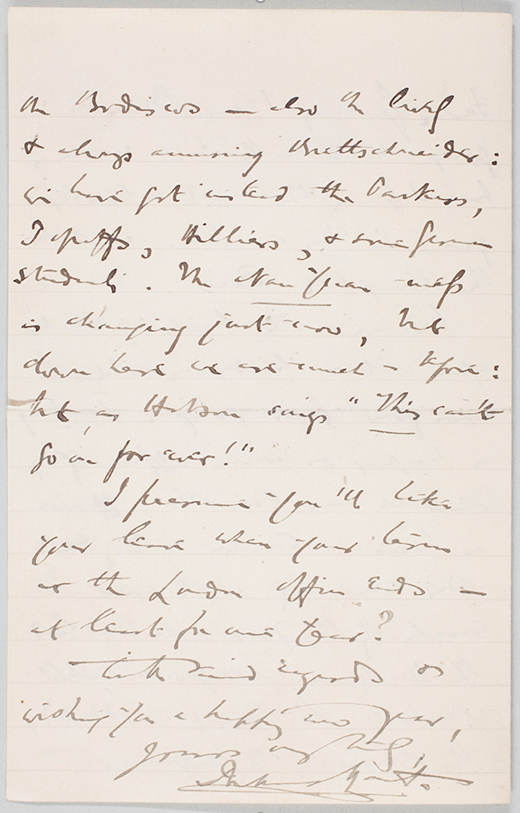 the Bodiscos — also the lively
& always amusing Brettschneider:
we have got instead the Parkers,
Topuffs, Hilliers, & some German
students. The Nan-yuan mess
is changing just now, but
down here we are much as before:
but, as Hobson sings "This can't
go on for ever!"
I presume you'll take
your leave when your term
at the London office ends —
at least for one year?
With kind regards &
wishing you a happy new year,
Yours very truly,
Robert Hart.